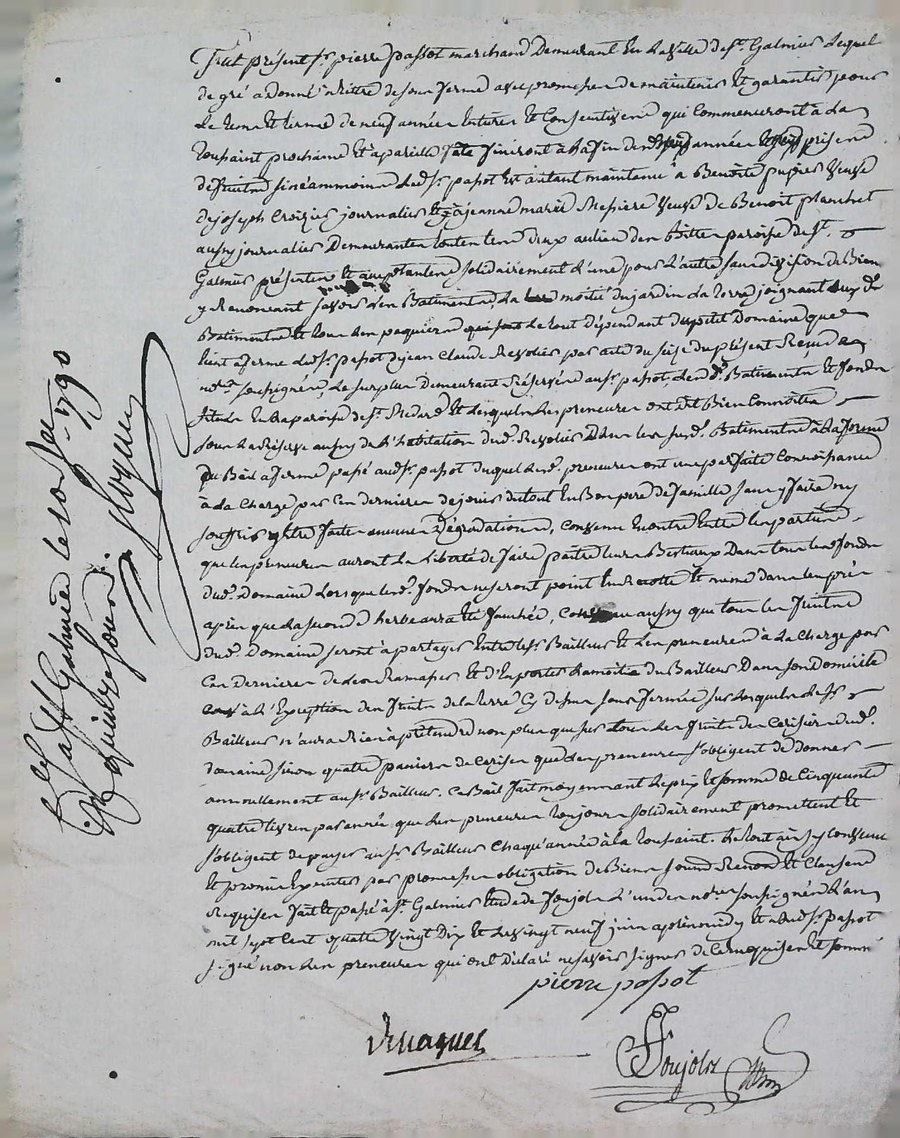 Fut présent sr pierre passot marchand demeurant en la ville de st Galmier Lequel
de gré a donné a tittre de sous ferme avec promesse de maintenir et garantir pour
Le tems et terme de neuf années entieres et Consecutives qui commenceront à La
toussaint prochaine et a pareille fête finiront a la fin des neuf années prises
de fruits sinéammoins Led. sr passot est autant maintenu a Benoite pupier veuve
de joseph Croizier journalier et à jeanne marie veuve de Benoit planchet
aussy journalier demeurantes toutes Les deux au lieu des paroisse de st.
Galmier présentes et acceptantes solidairement L'une pour L'autre sans division de Bien
y Renoncant savoir Les Batiments La moitié du jardin La terre joignant aux ds
Batiments et tous Les paquiers Le tout dépendant du petit Domaine que
tient a ferme Led. sr. passot de jean Claude Revolier par acte du seize du présent Reçu des
nores soussignés, Le surplus demeurant Réservé au sr passot, Les ds. Batiments et fonds
situés en La paroisse de st. Medard et Lesquels Les preneuses ont dit Bien Connoitre
sous La Réserve aussy de L'habitation dud. Revolier dans Les susd. Batiments à La forme
du Bail a ferme passé aud sr. passot duquel Lesd. preneuses ont une parfaite Connoissance
à La Charge par Ces dernieres de jouir du tout En Bon pere de famille sans y faire ny
souffrir être faite aucunes Dégradations, Convenu en outre Entre Les parties
que Les preneuses auront La Liberté de faire paitre Leurs Bestiaux Dans tous Les fonds
dud. Domaine Lorsque Lesd. fonds ne seront point En Recolte et même dans Les prés
après que La seconde herbe aura été fauchée, Convenu aussy que tous Les fruits
dud. Domaine seront à partager Entre Le sr. Bailleur et Les preneuses à La Charge par
Ces dernieres de Les Ramasser et d'Emporter La moitié du Bailleur Dans son Domicile
à L'Exception des fruits de La terre Cy dessus sous fermée sur Lesquels Le sr
Bailleur n'aura Rien à prétendre non plus que sur tous Les fruits des Cerisiers dud.
domaine sinon quatre paniers de Cerises que Les preneuses s'obligent de donner
annuellement au sr Bailleur. Ce Bail fait moyennant Le prix et somme de Cinquante
quatre Livres par année que Les preneuses toujours solidairement promettent et
s'obligent de payer au sr Bailleur Chaque année à La toussaint. Le tout ainsy Convenu
et promis Executer par promesses obligation de Biens soumd Renond et Clauses
Requises fait et passé à st. Galmier Etude de foujols L'un des nores soussignés L'an
mil sept Cent quatre vingt Dix et Le vingt neuf juin après midy et a Led. sr. passot
signé non Les preneuses qui ont Déclaré ne savoir signer de Ce Enquises et sommé
pierre passot
foujols
Galmier le 1790
Reçu quinze sous